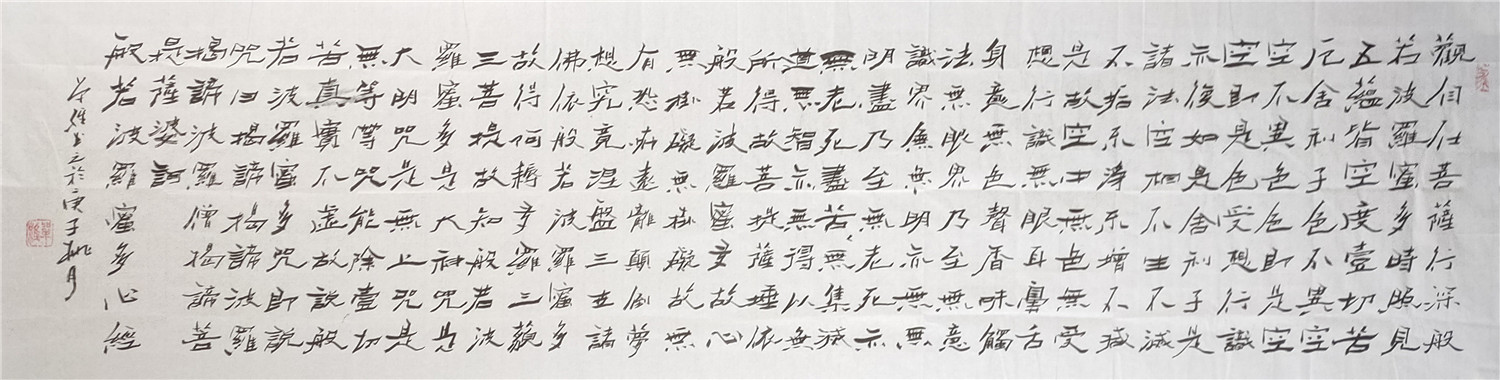 觀自在菩薩行深般
若波羅蜜多時照見
五蘊皆空度壹切苦
厄舍利子色不異空
空不異色色即是空
空即是色受想行識
亦復如是舍利子是
諸法空相不生不滅
不垢不淨不增不減
是故空中無色無受
想行識無眼耳鼻舌
身意無色聲香味觸
法無眼界乃至無意
識界無無明亦無無
明盡乃至無老死亦
無老死盡苦無集滅
道無智亦無得以無
所得故菩提薩埵依
般若波羅蜜多故心
無掛礙無掛礙故無
有恐怖遠離顛倒夢
想究竟涅盤三世諸
佛依般若波羅蜜多
故得阿耨多羅三藐
三菩提故知般若波
羅蜜多是大神咒是
大明咒是無上咒是
無等等咒能除壹切
苦真實不虛故說般
若波羅蜜多咒即說
咒曰揭諦揭諦波羅
揭諦波羅僧揭諦菩
提薩婆訶
般若波羅蜜多心經
之於庚子桃月